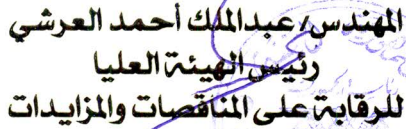 المهندس/عبدالملك أحمد العرشي
رئيس الهيئة العليا
للرقابة على المناقصات والمزايدات